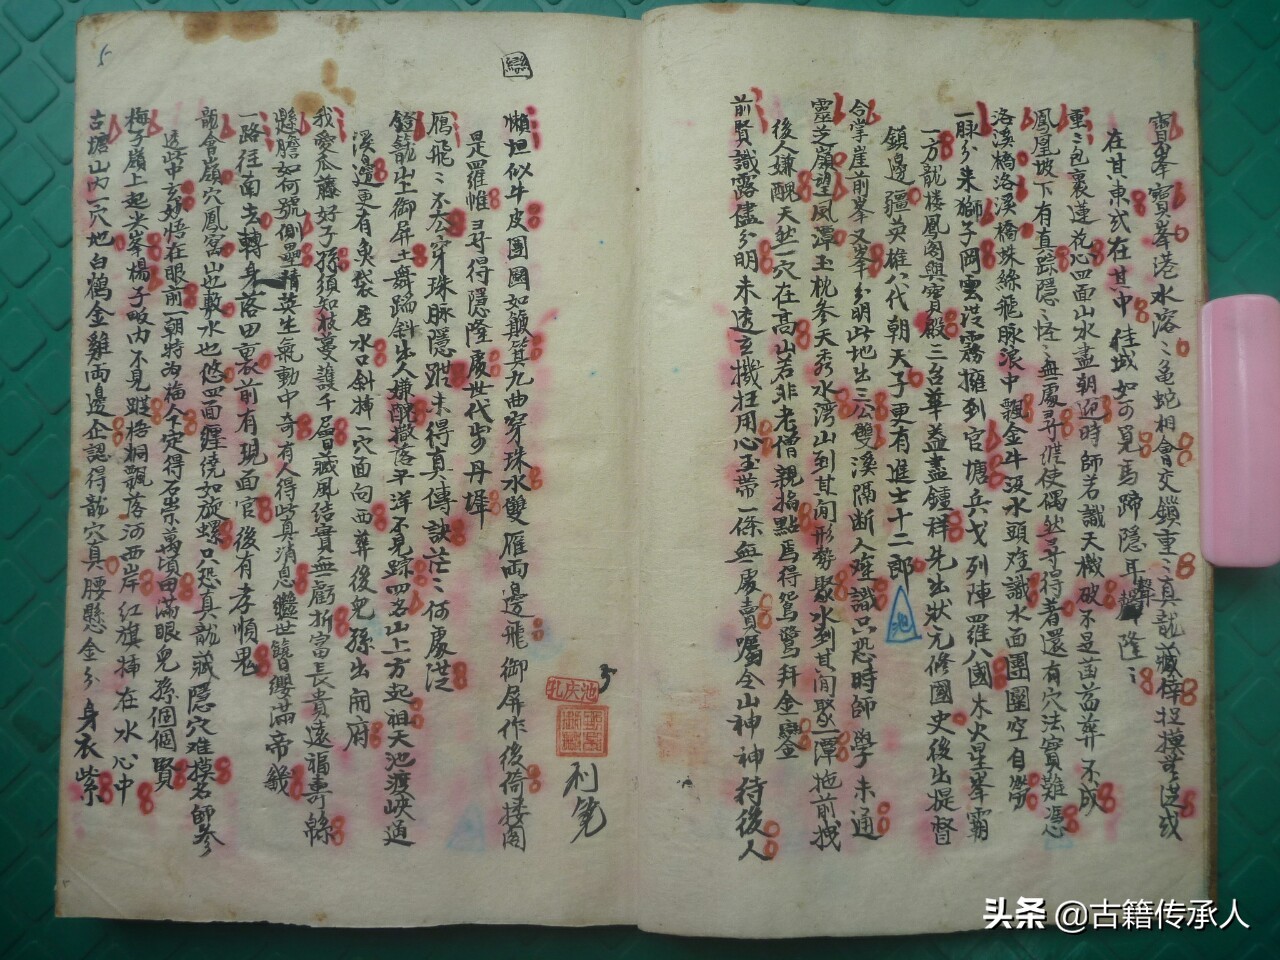 寶峯寶峯港水溶〻龜蛇相會交鎖重〻真龍藏粹捉摸
在其東或在其中佳城如可覓馬蹄隱耳聲隆〻
重〻包裹蓮花心四面山水盡朝迎時師若識天機破不是苗苗葬不成
鳳凰坡下有真踪隱〻怪〻無處尋縱使偶然尋得著還有穴法實難憑
洛溪橋洛溪橋蛛絲龍脉浪中飄金牛汲水頭难識水面團團空自勞
一脉分来獅子岡雲從霧擁到官塘兵戈列陣羅八國木火星峯霸
一方龍楼鳳閣與寳殿三台華盖盡鍾祥先出狀元修國史後出提督
鎮邊疆英雄八代朝天子更有進士十二郎
池
合掌崖前峯又峯分明此地生三公雙溪隔断人难識只恐時師學未通
靈芝嶺望風潭玉枕参天秀水湾山到其间形勢聚水到其间聚一潭拖前拽
後人嫌醜天然一穴在高山若非老僧親指點焉得鴛鸞拜金鑾
前賢識露儘分明未透玄機枉用心玉帶一條無處賣囑令山神神待後人
5
孔庆池
利宪
戀
懶坦似牛皮團圓如簸箕九曲穿珠水雙雁两邊飛御屏作後倚接閣
是羅帷尋得隱隆處世代步丹墀
鴈飛〻不去穿珠脉隱跡未得真傳訣茫〻何處決
鎊龍山上御屏土舞踏斜出人嫌醜撒落平洋不見踪四名山上方起祖天池渡峽過
溪邊更有魚袋居水口斜掉一穴面向西葬後兒孫出開府
我愛瓜藤好子孫須知枝蔓護千層藏風结實無虧折富長貴遠福壽緜
懸膽如何號側壘精英生氣動中奇有人得此真消息繼世簪纓滿帝畿
一路往南去轉身落四裏前有現面官後有孝順鬼
龍會嶺穴鳳窩山也敷水也悠四面纏绕如旋螺只恐真龍藏隱穴难摸名師参
透此中玄妙悟在眼前一朝特為楊公定得石崇萬頃田滿眼兒孫個個賢
梅子嶺上起尖峯楊子畈内不見蹤梧桐飄落河西岸红旗插在水心中
古塘山内一穴地白鶴金雞两邊企認得龍穴真腰懸金分身衣紫
5
头条 @古籍传承人